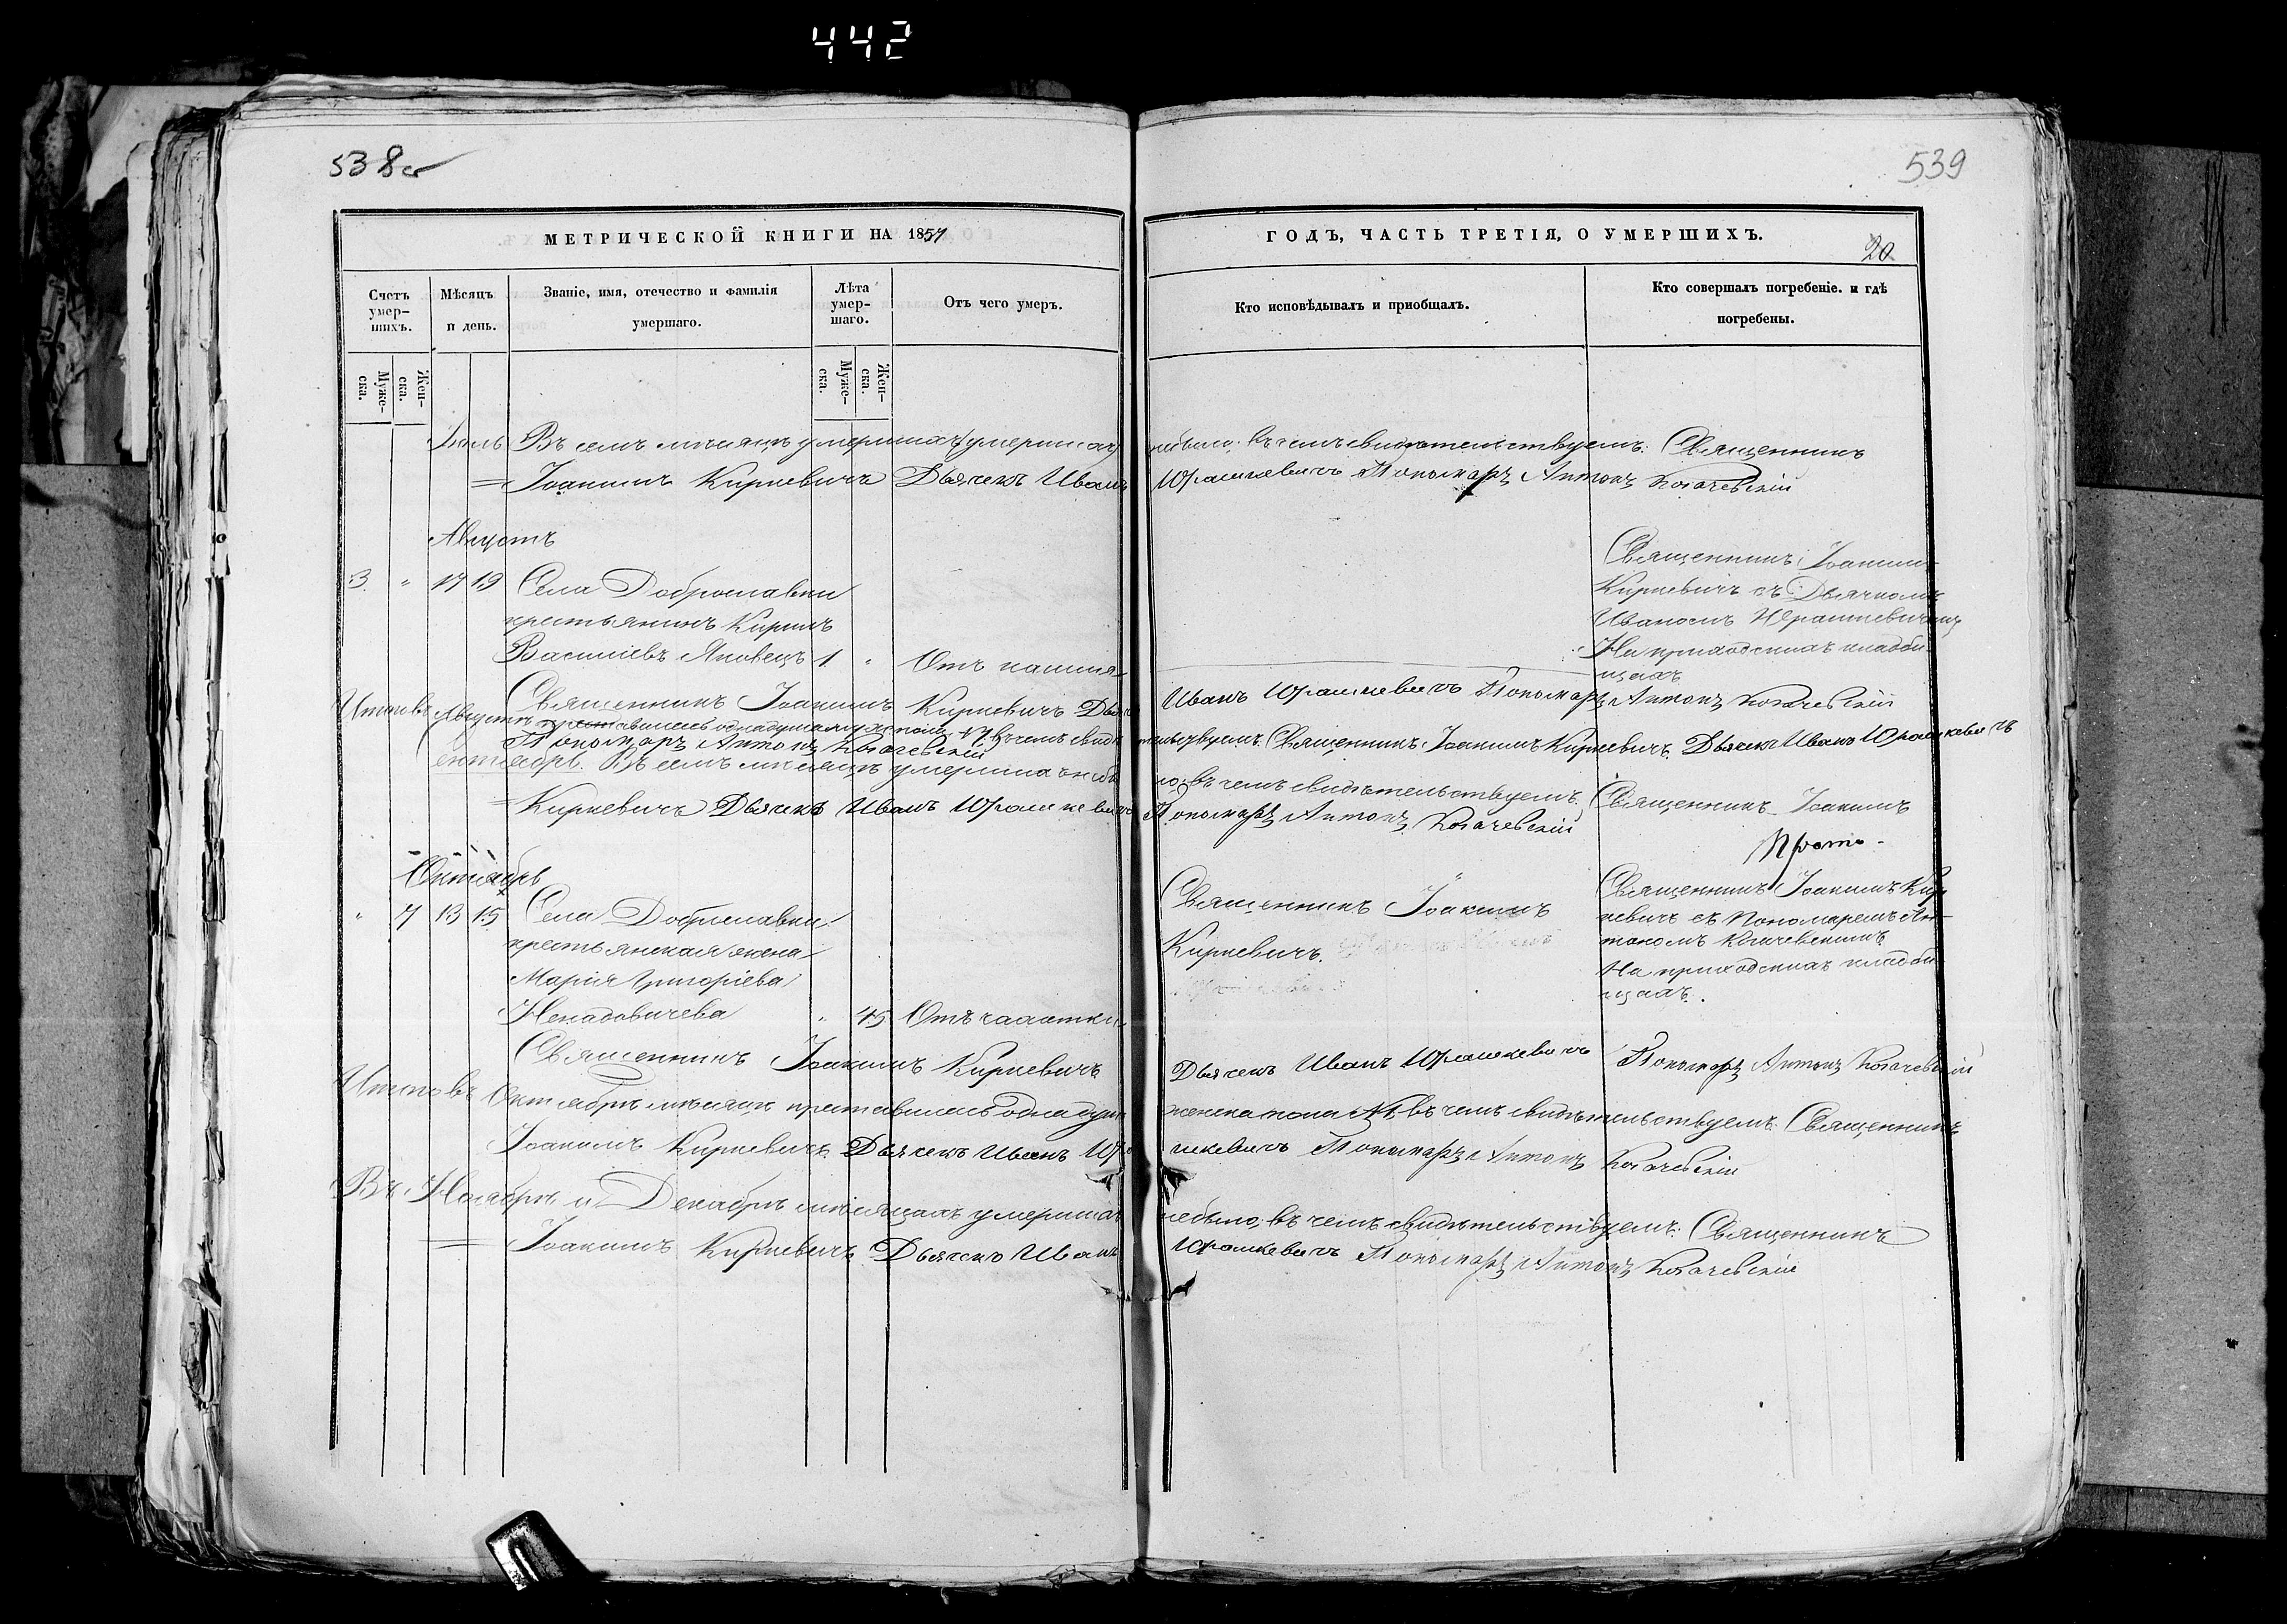 442
538
539
МЕТРИЧЕСКОЙ КНИГИ НА 1857
ГОДЪ, ЧАСТЬ ТРЕТІЯ, О УМЕРШИХЪ.
20
Счетъ умер-
шихъ.
Мѣсяцъ
и день.
Званіе, имя, отечество и фамилія
умершаго.
Лѣта
умер-
шаго.
Отъ чего умеръ.
Кто исповѣдывалъ и пріобщалъ.
Кто совершалъ погребеніе. и гдѣ
погребены.
Муже-
ска.
Жен-
ска.
Муже-
ска.
Жен-
ска.
Іюль Въ семъ мѣсяцѣ умершихъ небыло; въ чемъ свидѣтельствуемъ: Священникъ
Іоакимъ Киркевичъ Дьячекъ Иванъ Юрашкевичъ Пономарь Антонъ Когачевскій
Августъ
3 " 17 19 Села Доброславки
крестьянинъ
Василіевъ Яковецъ 1 " Отъ кашля
Священникъ Іоакимъ
Киркевичъ съ Дьячкомъ
Иваномъ Юрашкевичемъ
На приходскихъ кладби-
щахъ
Священникъ Іоакимъ Киркевичъ Иванъ Юрашкевичъ Пономарь Антонъ Когачевскій
Итого въ Августѣ въ чемъ свидѣтельствуемъ: Священникъ Іоакимъ Киркевичъ. Дьячекъ Иванъ Юрашкевичъ
Пономарь Антонъ Когачевскій
Сентябрь. Въ семъ мѣсяцѣ умершихъ небыло; въ чемъ свидѣтельствуемъ: Священникъ Іоакимъ
Киркевичъ Дьячекъ Иванъ Юрашкевичъ Пономарь Антонъ Когачевскій
Прото-
Октябрь
" 7 13 15 Села Доброславки
крестьянская жена
Марія Григоріева
Ненадовичева " 45 Отъ чахотки
Священникъ Іоакимъ
Киркевичъ.
Священникъ Іоакимъ Кир-
кевичъ съ Пономаремъ Ан-
тономъ Когачевскимъ
На приходскихъ кладби-
щахъ.
Священникъ Іоакимъ Киркевичъ Дьячекъ Иванъ Юрашкевичъ Пономарь Антонъ Когачевскій
Итого въ Октябрѣ мѣсяцѣ преставилась одна душа женска пола №1 въ чемъ свидѣтельствуемъ: Священникъ
Іоакимъ Киркевичъ Дьячекъ Иванъ Юрашкевичъ Пономарь Антонъ Когачевскій
Въ Ноябрѣ и Декабрѣ мѣсяцахъ умершихъ небыло, въ чемъ свидѣтельствуемъ: Священникъ
Іоакимъ Киркевичъ Дьячекъ Иванъ Юрашкевичъ Пономарь Антонъ Когачевскій